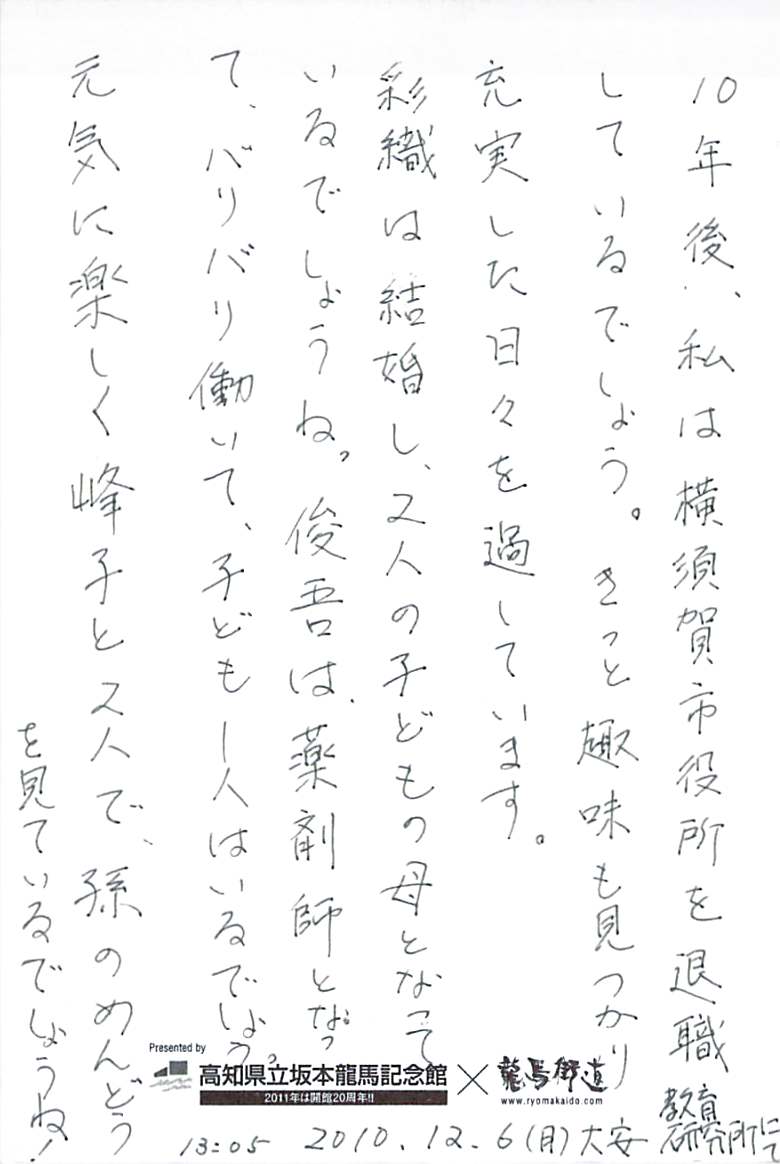 10年後、私は横須賀市役所を退職
しているでしょう。きっと趣味も見つかり
充実した日々を過しています。
彩織は結婚し、2人の子どもの母となって
いるでしょうね。俊吾は、薬剤師となっ
て、バリバリ働いて、子ども1人はいるでしょう。
元気に楽しく峰子と2人で、孫のめんどう
を見ているでしょうね!
Presented by
高知県立坂本龍馬記念館×龍馬街道
2011年は開館20周年!!
www.ryomakaido.com
13:05 2010.12.6(月)大安 教育
研究所にて